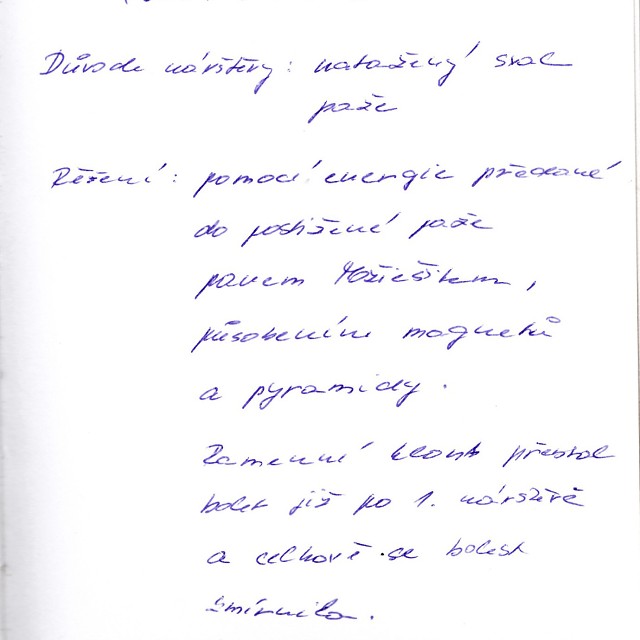 Důvod návštěvy: natažený sval
paže
Řešení: pomocí energie předané
do postižené paže
panem
působením magnetů
a pyramidy.
Ramenní kloub přestal
bolet již po 1. návštěvě
a celkově se bolest
zmírnila.